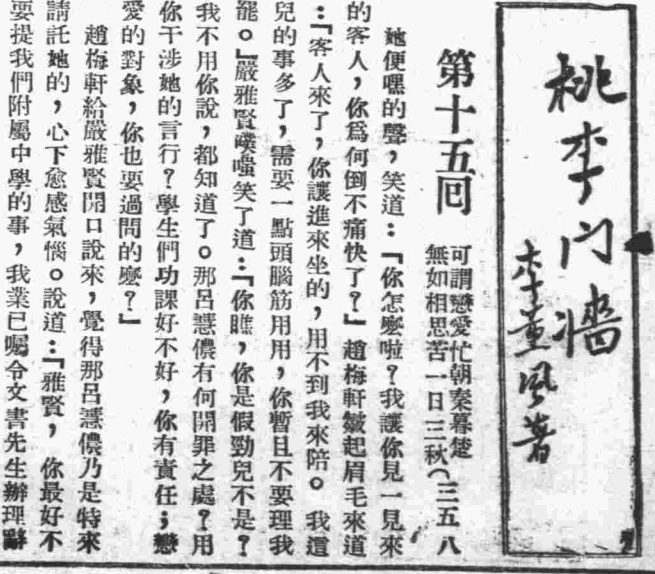 桃李门墙
李薰风著
第十五回
可謂戀愛忙朝秦暮楚
無如相思苦一日三秋(三五八
她便嘿的聲,笑道:「你怎麼啦?我讓你見一見來
的客人,你爲何倒不痛快了?」趙梅軒皺起眉毛來道
:「客人來了,你讓進來坐的,用不到我來陪。我這
兒的事多了,需要一點頭腦筋用用,你暫且不要理我
罷。」嚴雅賢噗嗤笑了道:「你瞧,你是假勁兒不是?
我不用你說,都知道了。那呂慧儂有何開罪之處?用
你干涉她的言行?學生們功課好不好,你有責任;戀
愛的對象,你也要過問的麼?」
趙梅軒給嚴雅賢開口說來,覺得那呂慧儂乃是特來
請託她的,心下愈感氣惱。說道:「雅賢,你最好不
要提我們附屬中學的事,我業已囑令文書先生辦理辭